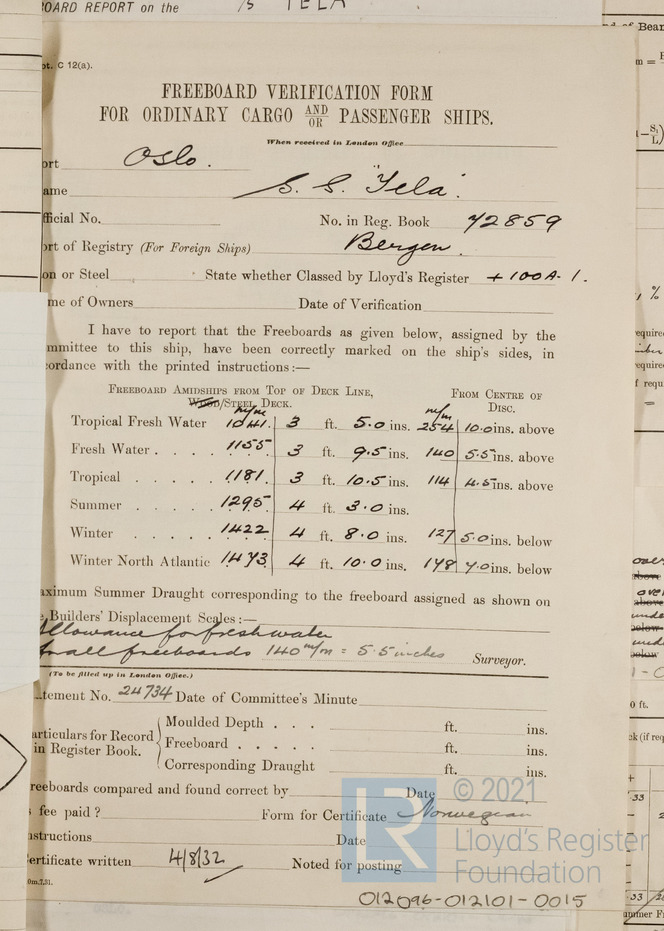 OARD REPORT on the   S TELA
pt. C 12(a).
FREEBOARD VERIFICATION FORM
FOR ORDINARY CARGO AND/OR PASSENGER SHIPS.
When received in London Office
ort Oslo.
ame S. S. "Tela".
fficial No. No. in Reg. Book 72859
ort of Registry (For Foreign Ships) Bergen.
on or Steel State whether Classed by Lloyd's Register +100A.1.
me of Owners Date of Verification
I have to report that the Freeboards as given below, assigned by the
mmittee to this ship, have been correctly marked on the ship's sides, in
cordance with the printed instructions :—
FREEBOARD AMIDSHIPS FROM TOP OF DECK LINE, FROM CENTRE OF
WOOD/STEEL DECK. DISC.
m/m m/m
Tropical Fresh Water 1041. 3 ft. 5.0 ins. 254 10.0 ins. above
Fresh Water . . . . 1155 3 ft. 9.5 ins. 140 5.5 ins. above
Tropical . . . . . 1181. 3 ft. 10.5 ins. 114 4.5 ins. above
Summer . . . . . 1295. 4 ft. 3.0 ins.
Winter . . . . . 1422 4 ft. 8.0 ins. 127 5.0 ins. below
Winter North Atlantic 1473. 4 ft. 10.0 ins. 178 7.0 ins. below
aximum Summer Draught corresponding to the freeboard assigned as shown on
Builders' Displacement Scales :—
Allowance for fresh water
for all freeboards 140 m/m = 5.5 inches Surveyor.
(To be filled up in London Office.)
tement No. 24734 Date of Committee's Minute
articulars for Record in Register Book.
Moulded Depth . . . ft. ins.
Freeboard . . . . . ft. ins.
Corresponding Draught ft. ins.
reeboards compared and found correct by Date
s fee paid ? Form for Certificate Norwegian
nstructions Date
ertificate written 4/8/32 Noted for posting
0m.7.31.
© 2021
LR
Lloyd's Register
Foundation
012096-012101-0015